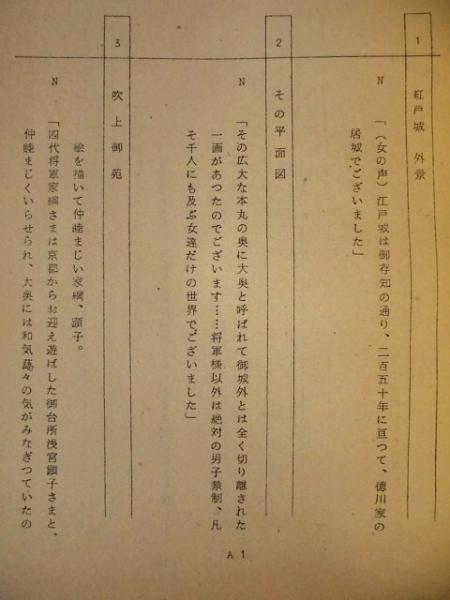 1
江戸城 外景
N 「(女の声)江戸城は御存知の通り、二百五十年に亘つて、徳川家の
居城でございました」
2
その平面図
N 「その広大な本丸の奥に大奥と呼ばれて御城外とは全く切り離された
一画があつたのでございます……将軍様以外は絶対の男子禁制、凡
そ千人にも及ぶ女達だけの世界でございました」
3
吹上御苑
絵を描いて仲睦まじい家綱、顕子。
N 「四代将軍家綱さまは京都からお迎え遊ばした御台所浅宮顕子さまと、
仲睦まじくいらせられ、大奥には和気藹々の気がみなぎつていたの
A 1